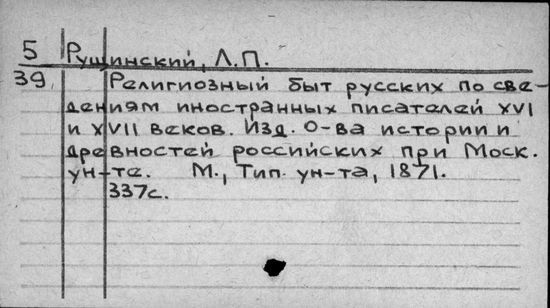 5 Рущинский, Л.П.
39 Религиозный быт русских по све-
дениям иностранных писателей XVI
и XVII веков. Изд. О-ва истории и
древностей российских при Моск.
ун-те. М., Тип. ун-та, 1871.
337с.